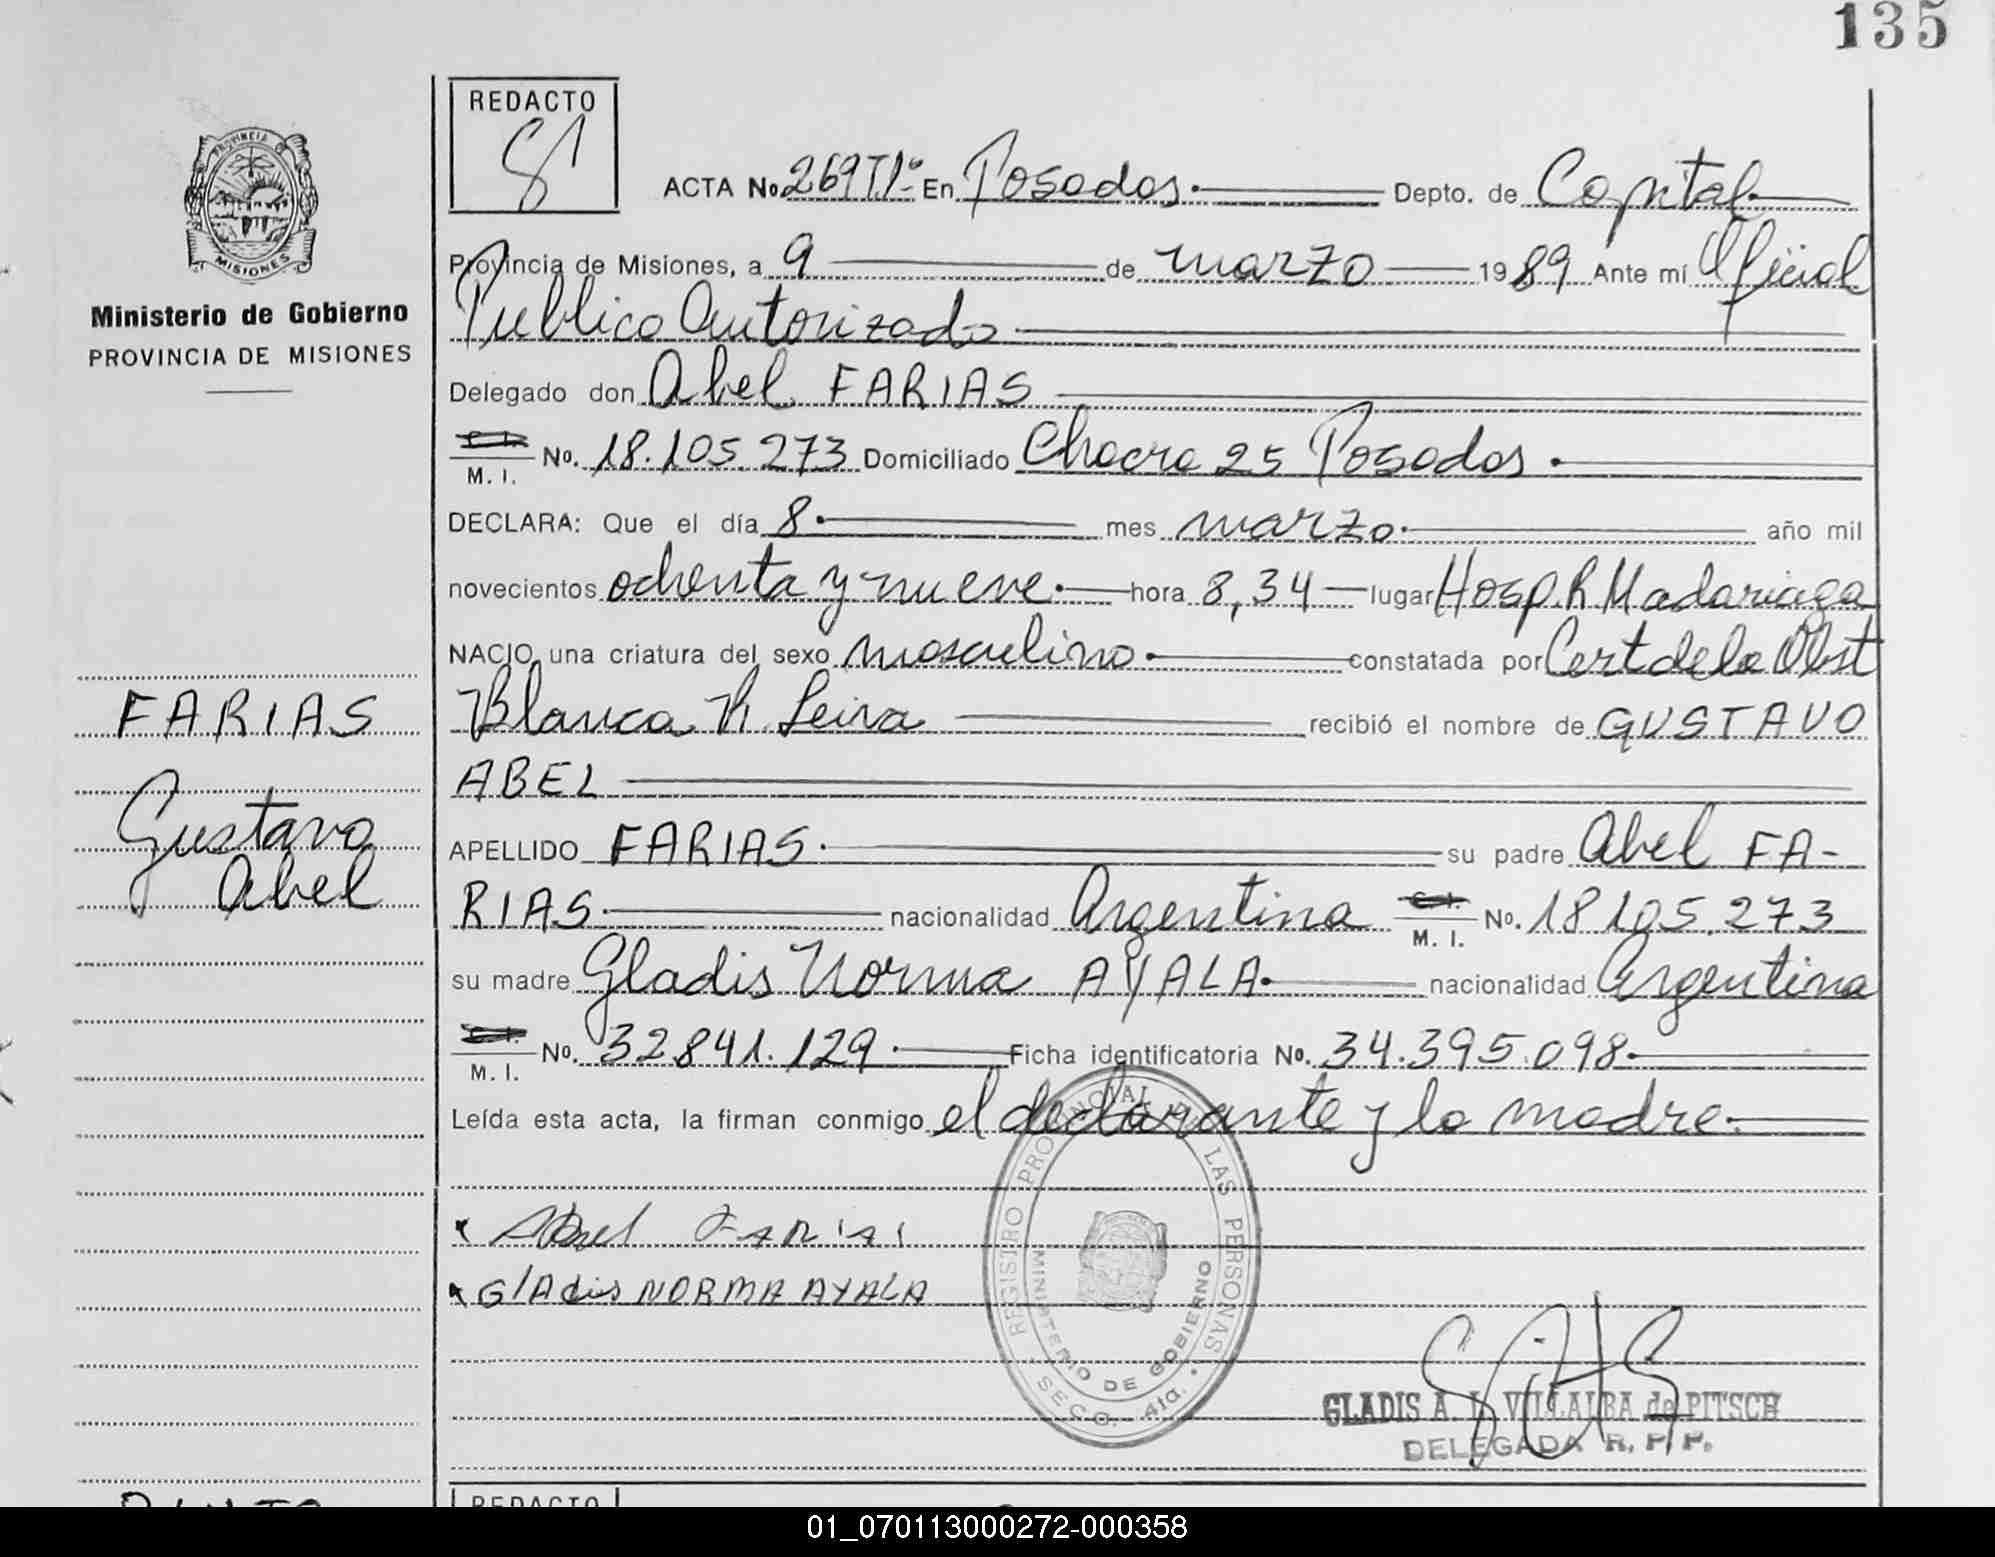 135
PROVINCIA
MISIONES
Ministerio de Gobierno
PROVINCIA DE MISIONES
FARIAS
Gustavo
Abel
REDACTO
ACTA No. 269 T1º En Posadas. Depto. de Capital
Provincia de Misiones, a 9 de marzo 1989 Ante mí Oficial
Publico Autorizado
Delegado don Abel FARIAS
M. I. No. 18.105.273 Domiciliado Chacra 25 Posadas.
DECLARA: Que el día 8. mes marzo. año mil
novecientos ochenta y nueve. hora 8,34 lugar Hosp. R. Madariaga
NACIO una criatura del sexo masculino. constatada por Cert de la Obst
Blanca R. Leiva recibió el nombre de GUSTAVO
ABEL
APELLIDO FARIAS. su padre Abel FA-
RIAS. nacionalidad Argentina M. I. No. 18.105.273
su madre Gladis Norma AYALA. nacionalidad Argentina
M. I. No. 32.841.129. Ficha identificatoria No. 34.395.098.
Leída esta acta, la firman conmigo el declarante y la madre.
Abel FARIAS
GlAdis NORMA AYALA
REGISTRO PROVINCIAL DE LAS PERSONAS
MINISTERIO DE GOBIERNO
SECC. 4ta.
GLADIS A. VILLALBA de PITSCH
DELEGADA R. P. P.
REDACTO
01_070113000272-000358